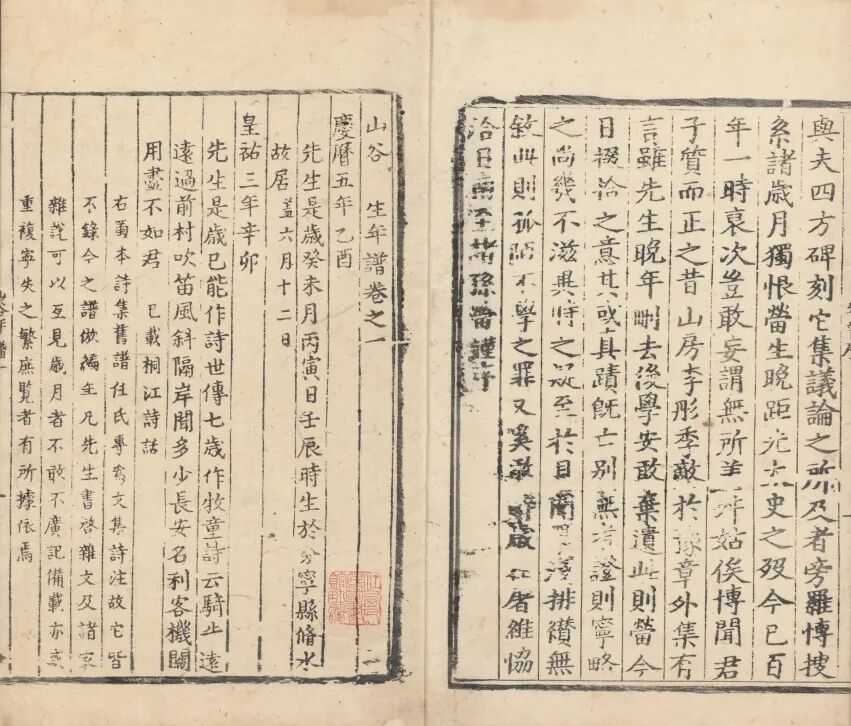 與夫四方碑刻它集議論之所及者旁羅愽搜
系諸歲月獨恨㽦生晚距太史之歿今已百
年一時裒次豈敢妄謂無所差舛姑俟博聞君
子質而正之昔山房李彤季敵於豫章外集有
言雖先生晚年刪去後學安敢棄遺此則㽦今
日掇拾之意其或真蹟既亡別無考證則寧略
之尚幾不滋異時之疑至於目淺排纉無
敘此則孤陋不學之罪又奚敢辭歲在屠維協
洽日南至諸孫㽦謹序
山谷 生年譜卷之一
慶曆五年乙酉
先生是歲癸未月丙寅日壬辰時生於分寧縣脩水
故居 蓋六月十二日
皇祐三年辛卯
先生是歲已能作詩世傳七歲作牧童詩云騎止遠
遠過前村吹笛風斜隔岸聞多少長安名利客機關
用盡不如君 已載桐江詩話
右蜀本詩集舊譜任氏專爲文集詩注故它皆
不錄今之譜倣編年凡先生書啓雜文及諸家
雜說可以互見歲月者不敢不廣記備載亦或
重複寧失之繁庶覽者有所據依焉